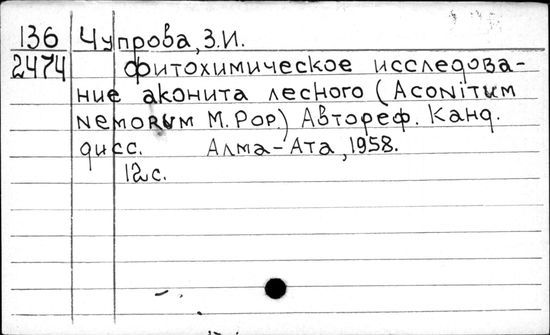 136 Чупрова, З.И.
2474 Фитохимическое исследова-
ние аконита лесного (Aconitum
nemorum M. Pop.) Автореф. Канд.
дисс. Алма-Ата, 1958.
12 с.